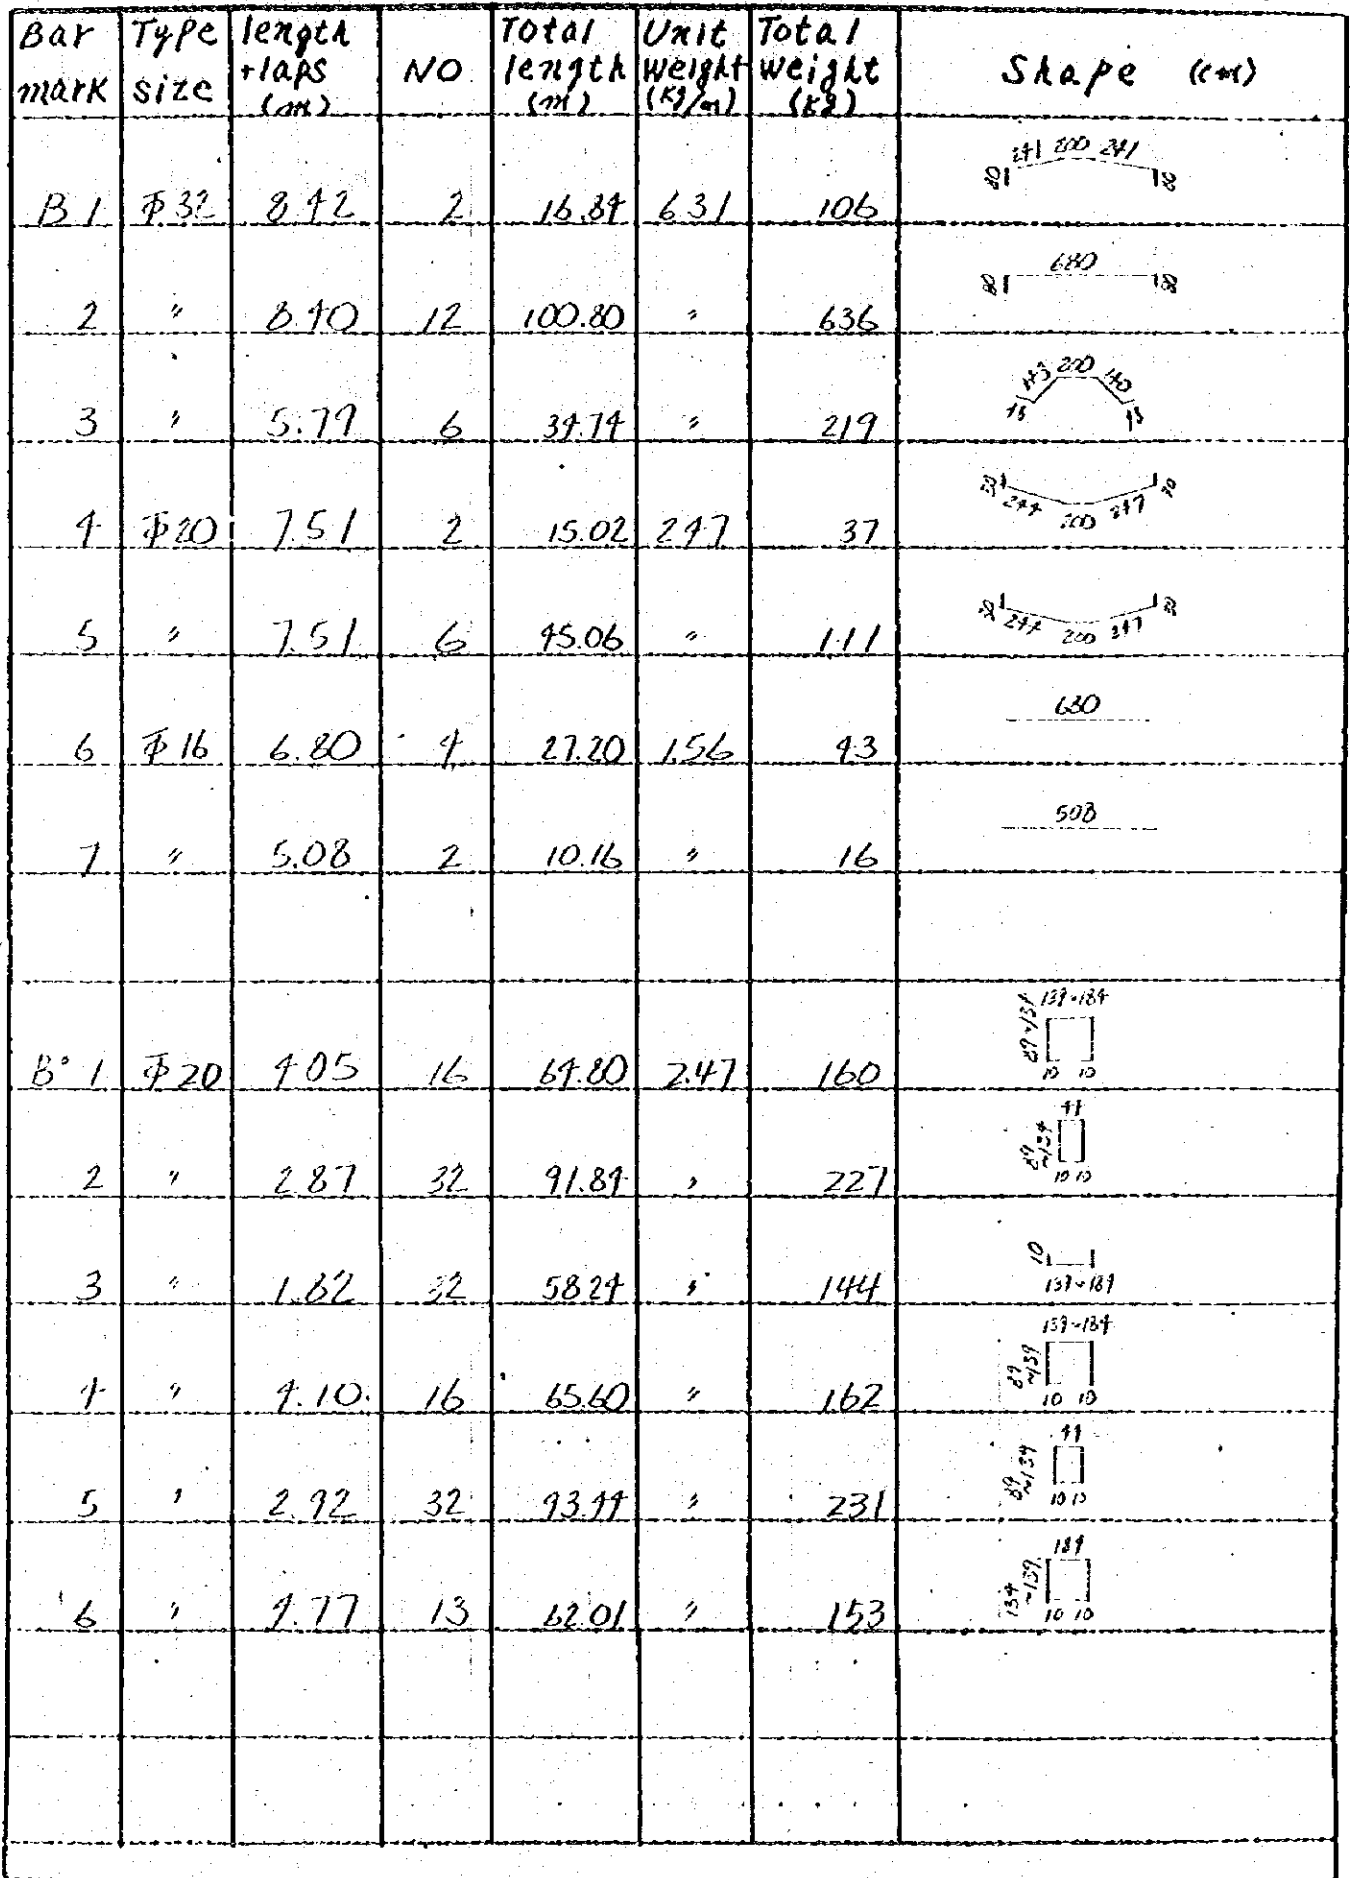 Bar mark Type size length +laps (m) NO Total length (m) Unit weight (kg/m) Total weight (kg) Shape (cm)
B 1 Φ32 8.42 2 16.84 6.31 106 80 241 200 241 80
2 〃 8.40 12 100.80 〃 636 80 680 80
3 〃 5.79 6 34.74 〃 219 45 143 200 140 45
4 Φ20 7.51 2 15.02 2.47 37 244 200 247
5 〃 7.51 6 45.06 〃 111 244 200 247
6 Φ16 6.80 4 27.20 1.56 43 680
7 〃 5.08 2 10.16 〃 16 508
B° 1 Φ20 4.05 16 64.80 2.47 160 139~184 10 10
2 〃 2.87 32 91.84 〃 227 44 89~134 10 10
3 〃 1.82 32 58.24 〃 144 10 139~184
4 〃 4.10 16 65.60 〃 162 139~184 89~139 10 10
5 〃 2.92 32 93.44 〃 231 44 89~134 10 10
6 〃 4.77 13 62.01 〃 153 184 134~139 10 10